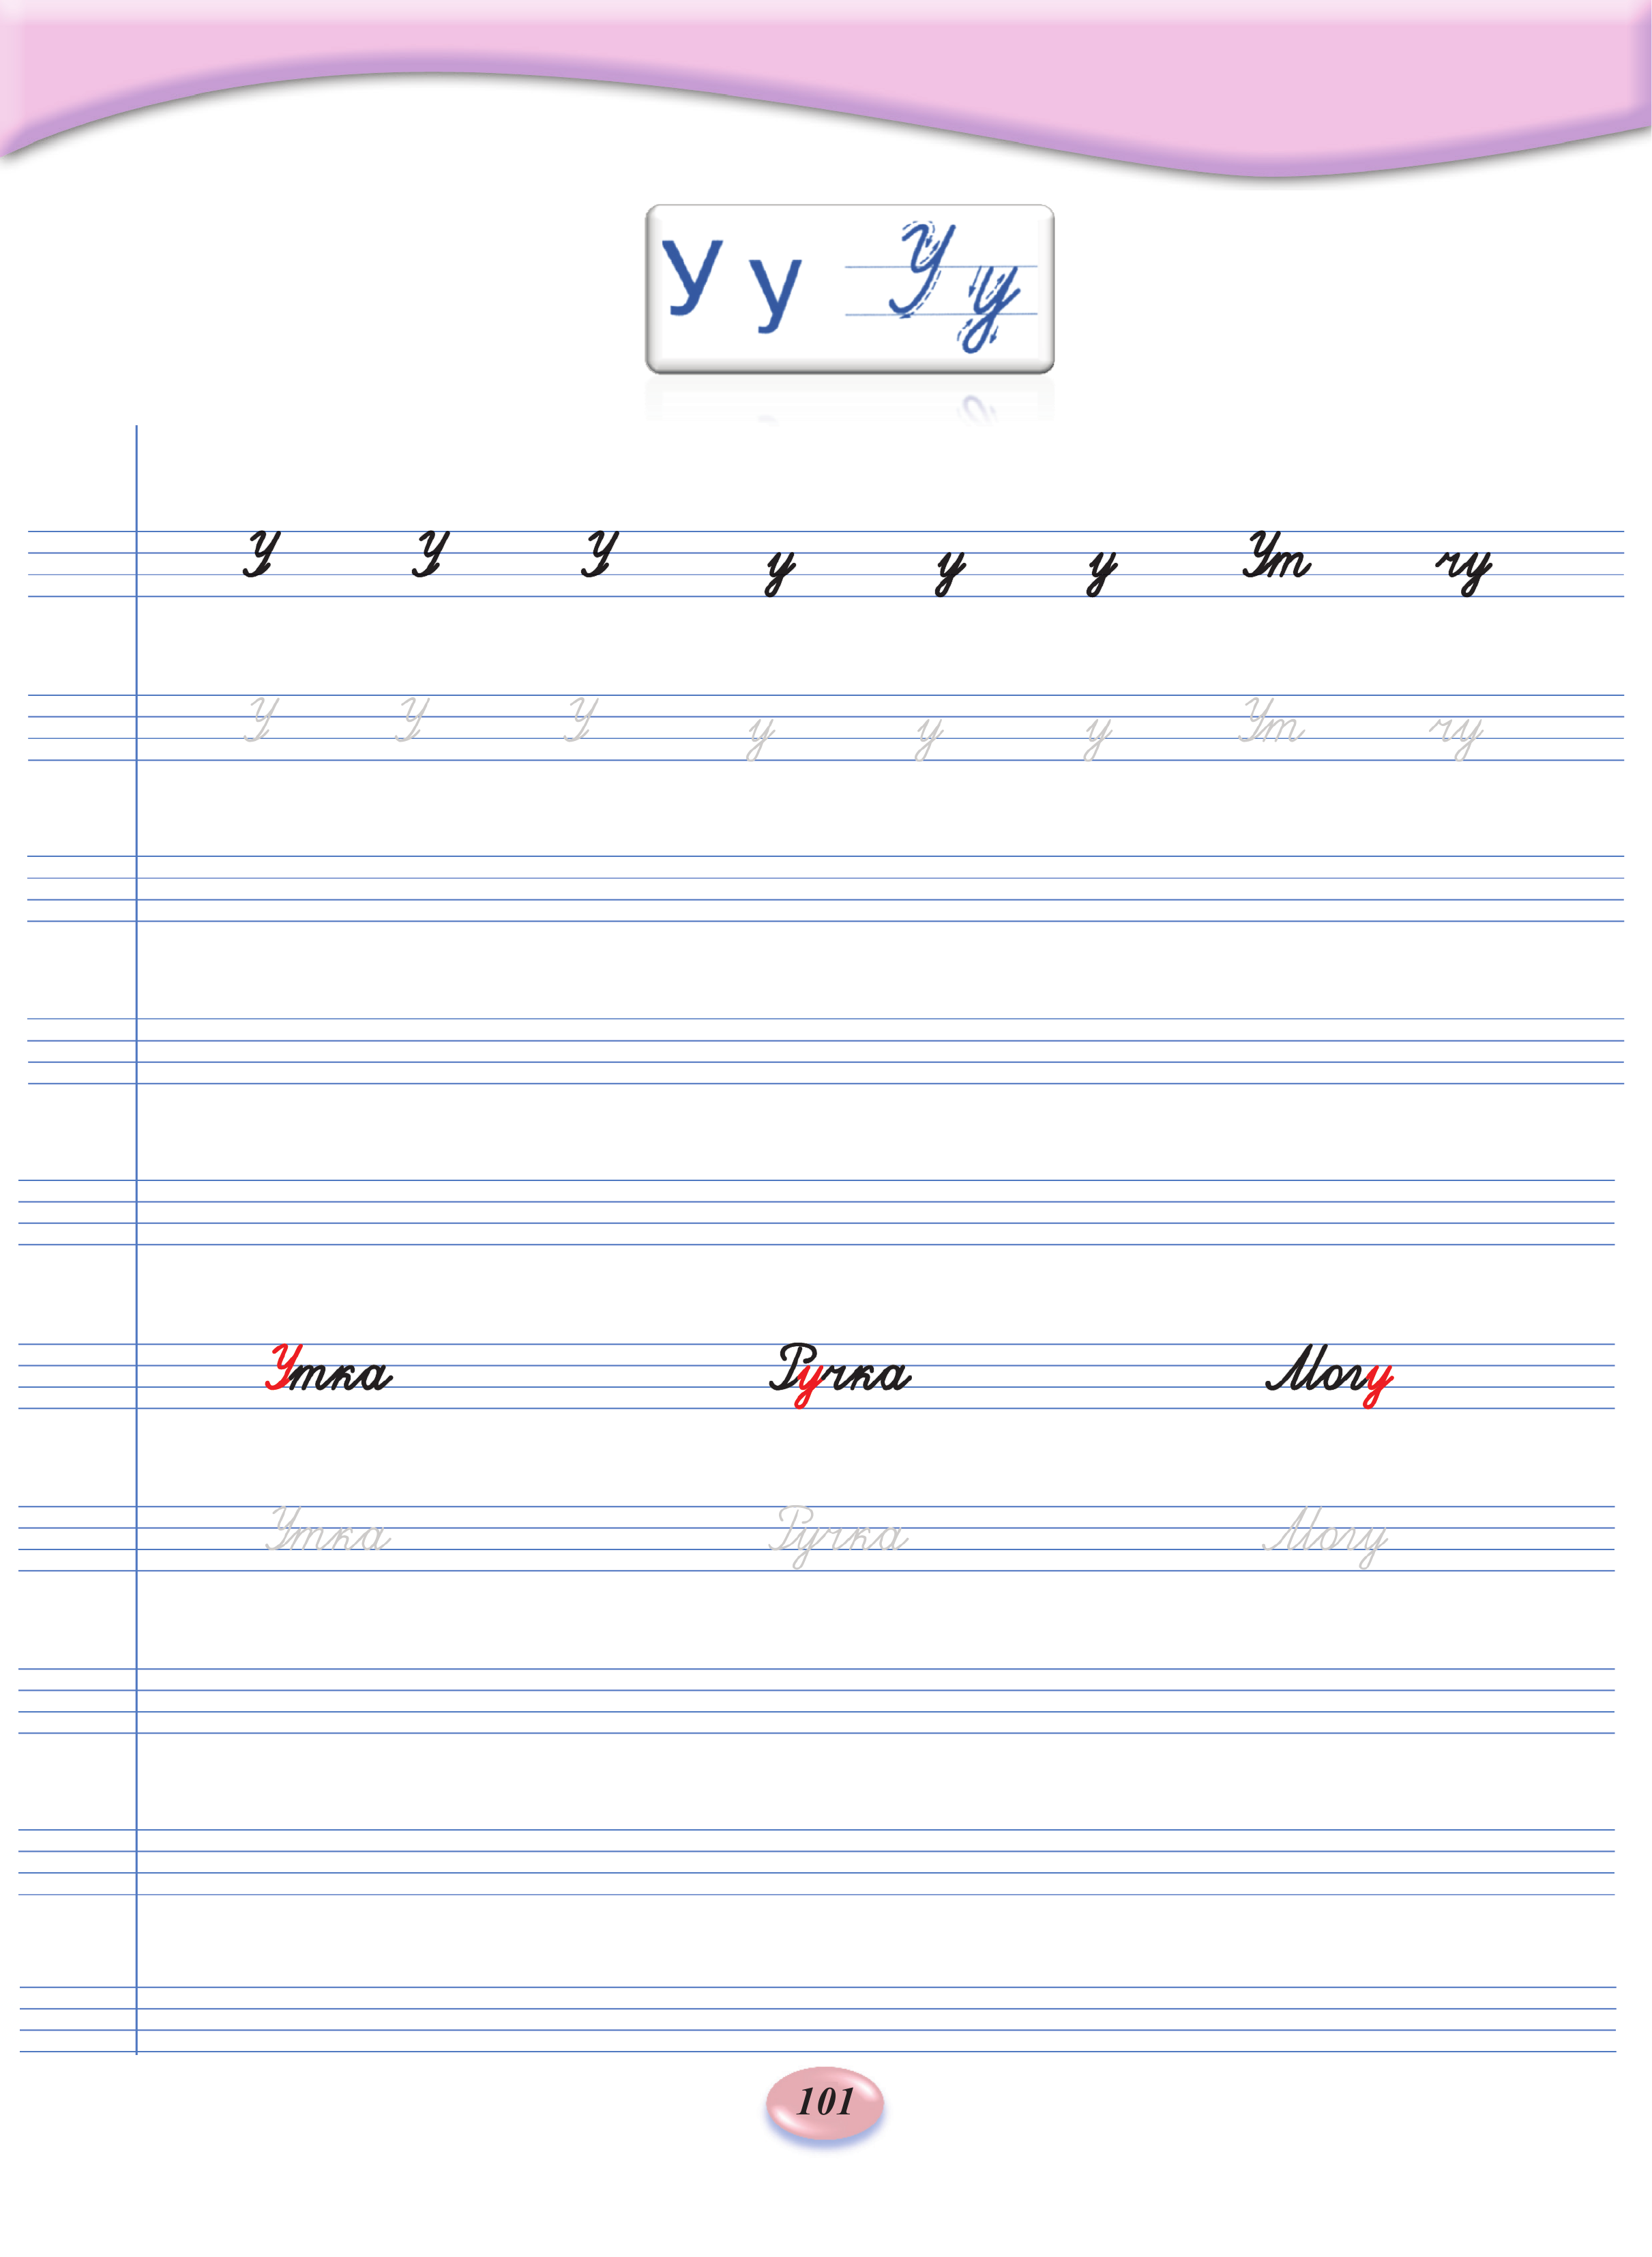 У у У у
У У У у у у Ут чу
У У У у у у Ут чу
Утка Ручка Могу
Утка Ручка Могу
101